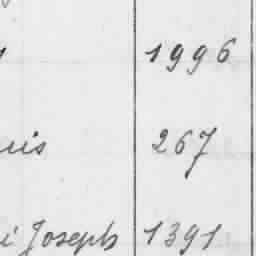 1996
267
Joseph 1391